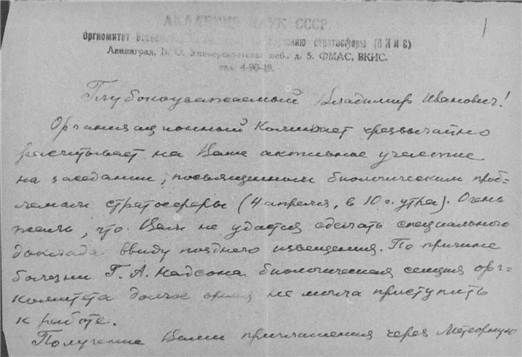 1
АКАДЕМИЯ НАУК СССР.
Оргкомитет Всесоюзной по изучению стратосферы (ВКИС)
Ленинград, В. О. Университетская наб., д. 5. ФМАС, ВКИС.
тел. 4-90-19.
Глубокоуважаемый Владимир Иванович!
Организационный Комитет чрезвычайно
рассчитывает на Ваше активное участие
на заседании, посвященном биологическим проб-
лемам стратосферы (4 апреля, в 10 ч. утра). Очень
жаль, что Вам не удастся сделать специального
доклада ввиду позднего извещения. По причине
болезни Г. А. Надсона биологическая секция орг-
комитета долгое время не могла приступить
к работе.
Получение Вами приглашения через Метеорную